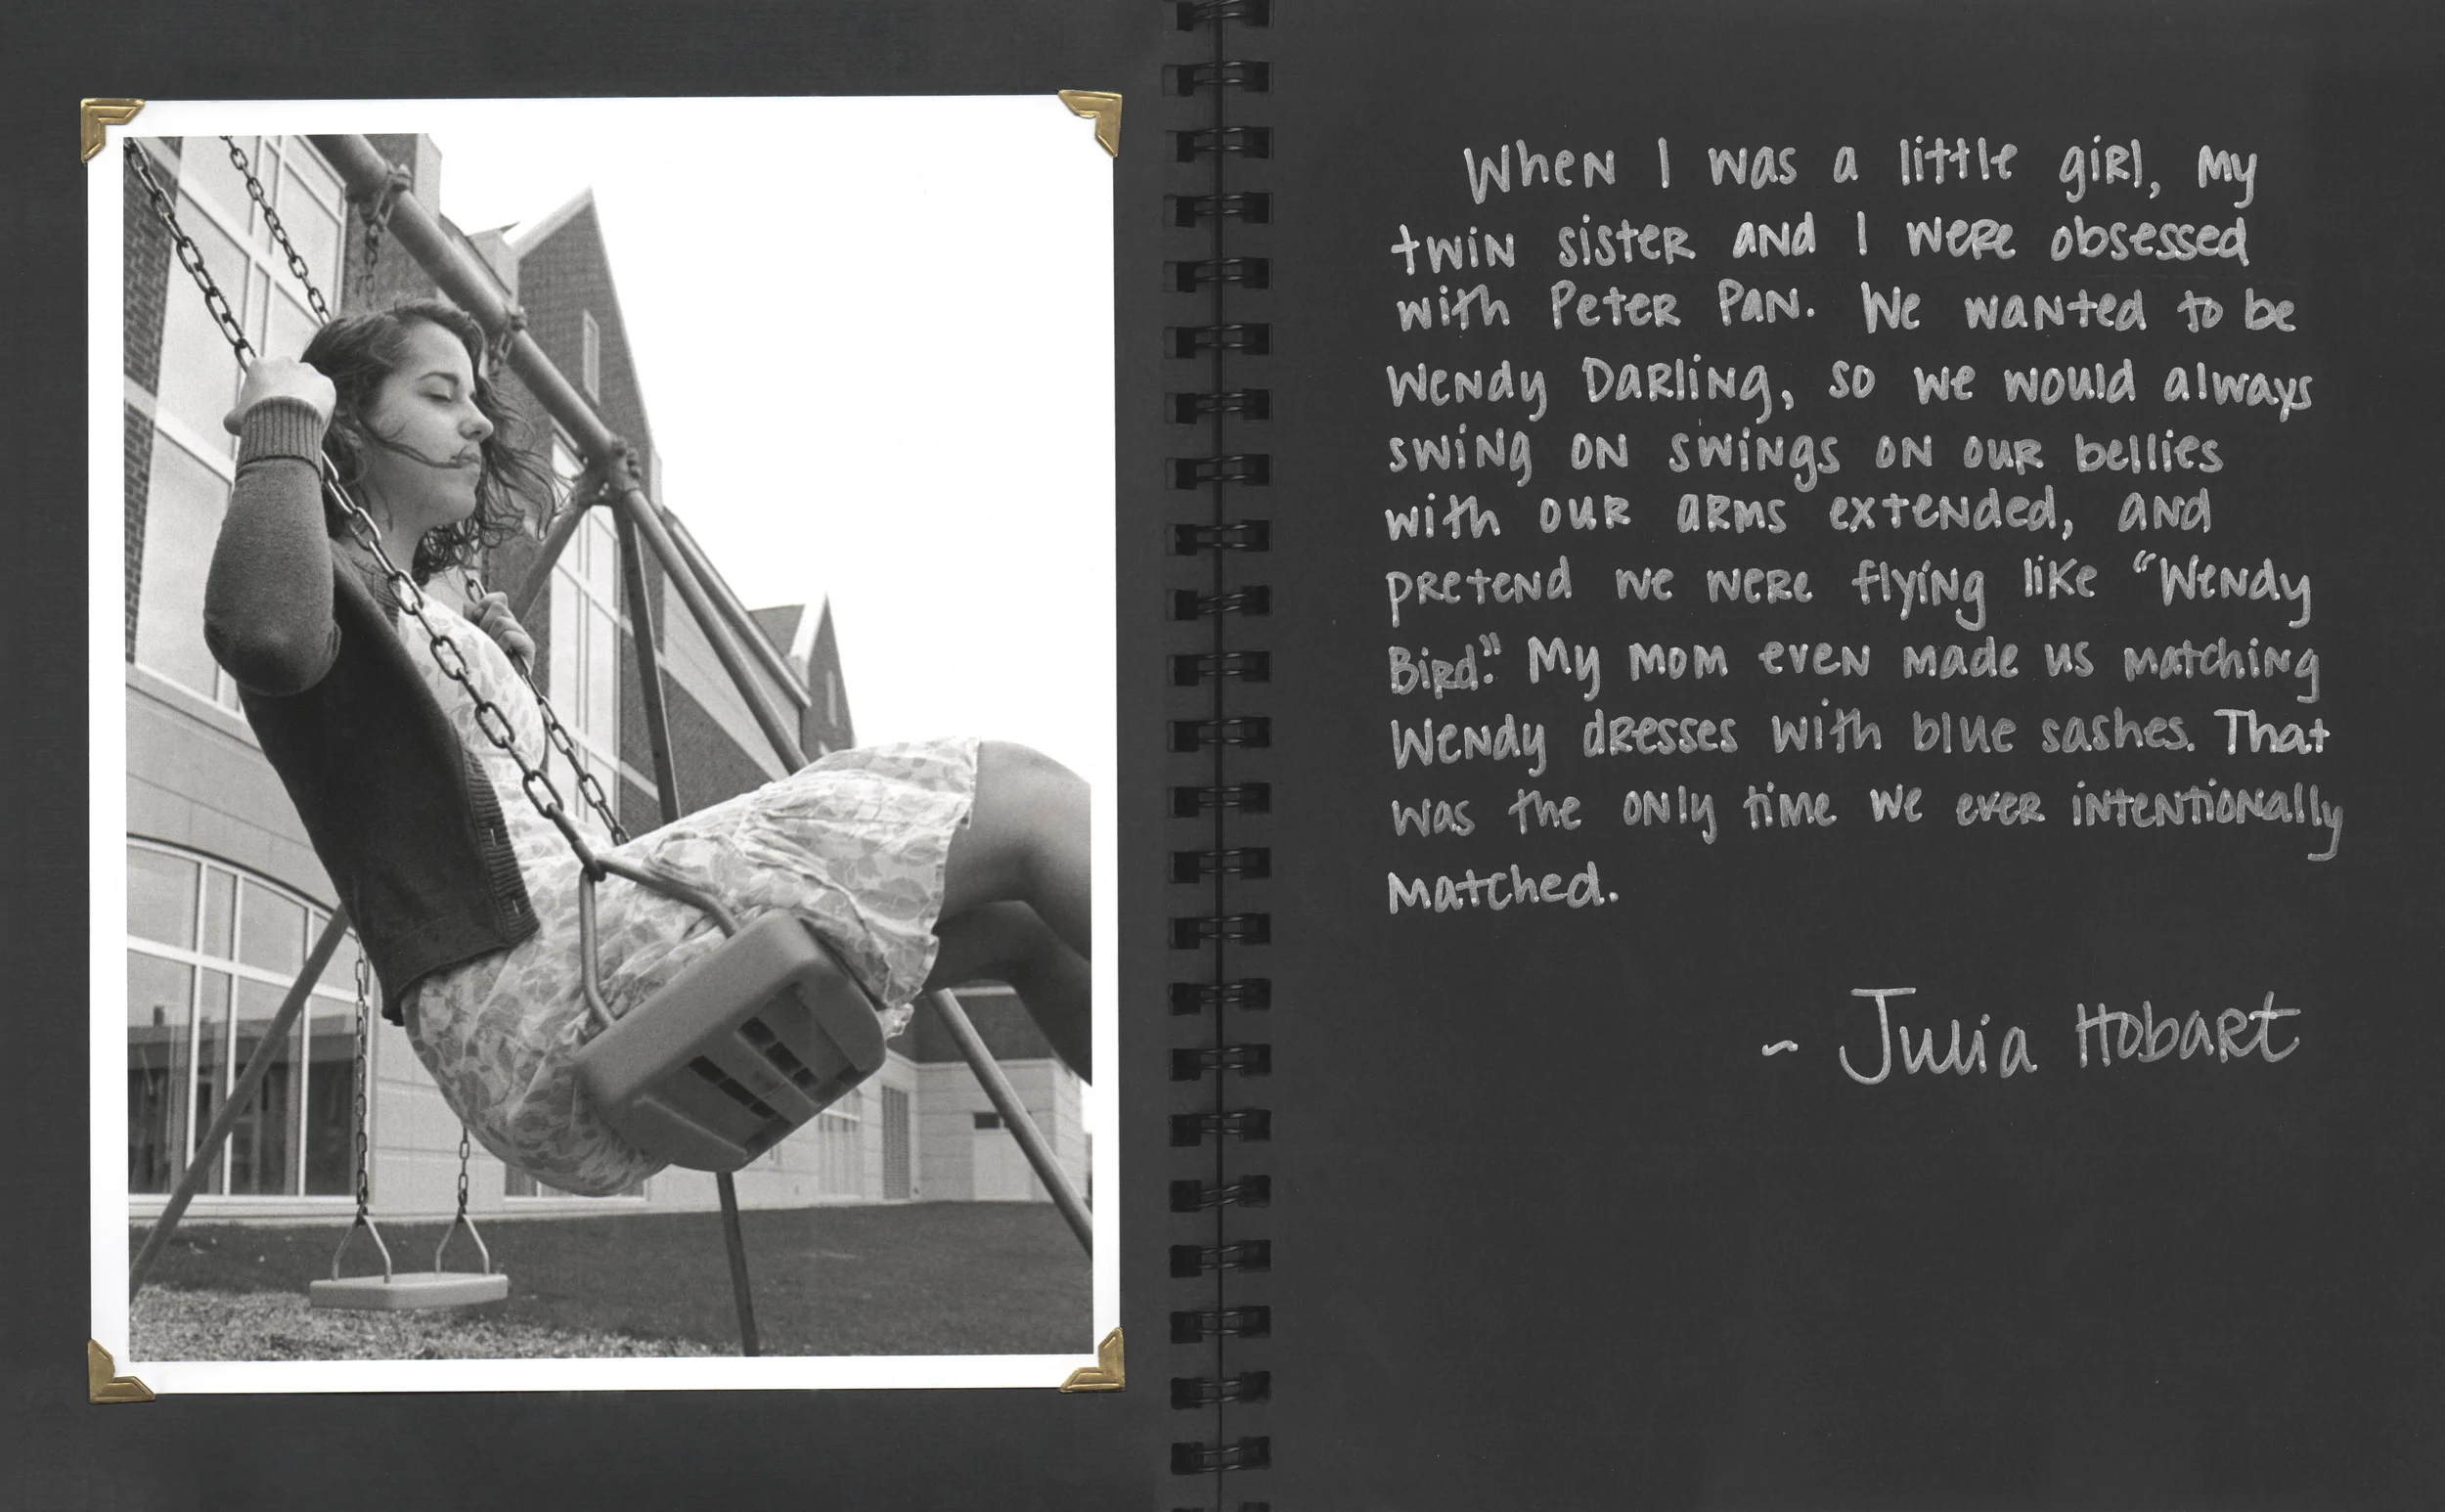 When I was a little girl, my
twin sister and I were obsessed
with Peter Pan. We wanted to be
Wendy Darling, so we would always
swing on swings on our bellies
with our arms extended, and
pretend we were flying like "Wendy
Bird." My mom even made us matching
Wendy dresses with blue sashes. That
was the only time we ever intentionally
matched.
~ Julia Hobart